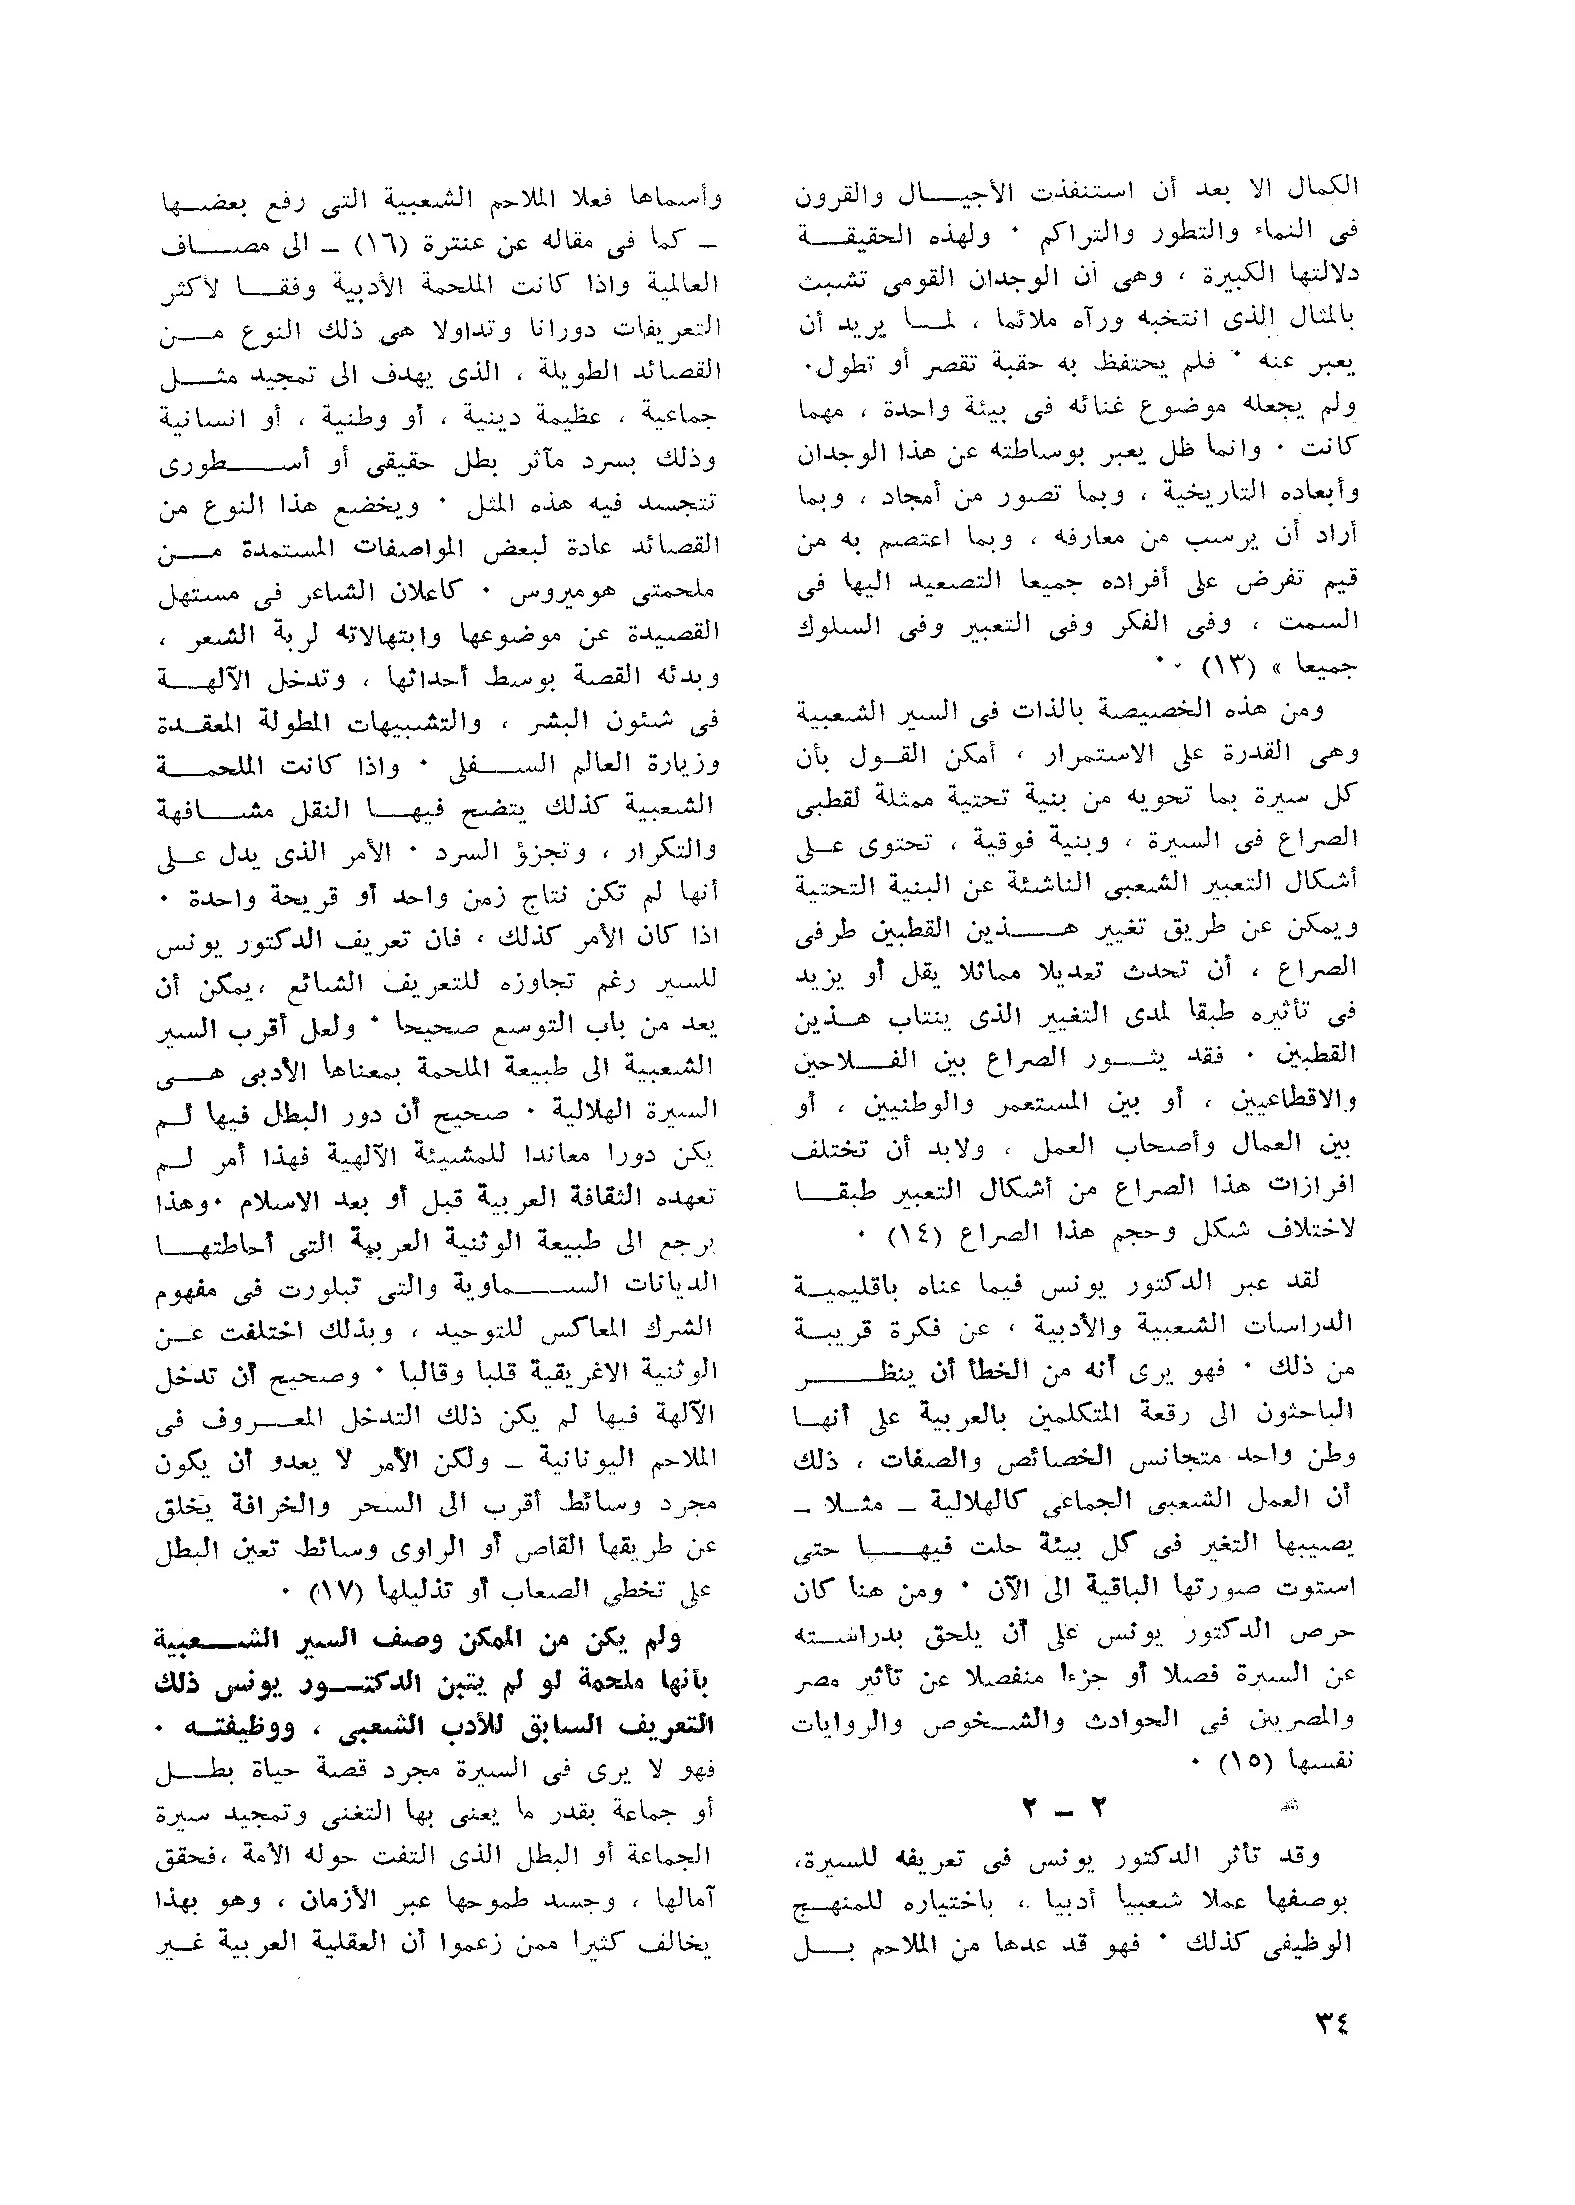 الكمال الا بعد أن استنفذت الأجيال والقرون
فى النماء والتطور والتراكم ٠ ولهذه الحقيقة
دلالتها الكبيرة ، وهى أن الوجدان القومى تشبث
بالمثال الذى انتخبه ورآه ملائما ، لما يريد أن
يعبر عنه ٠ فلم يحتفظ به حقبة تقصر أو تطول٠
ولم يجعله موضوع غنائه فى بيئة واحدة ، مهما
كانت ٠ وانما ظل يعبر بوساطته عن هذا الوجدان
وأبعاده التاريخية ، وبما تصور من أمجاد ، وبما
أراد أن يرسب من معارفه ، وبما اعتصم به من
قيم تفرض على أفراده جميعا التصعيد اليها فى
السمت ، وفى الفكر وفى التعبير وفى السلوك
جميعا » (١٣) ٠٠
ومن هذه الخصيصة بالذات فى السير الشعبية
وهى القدرة على الاستمرار ، أمكن القول بأن
كل سيرة بما تحويه من بنية تحتية ممثلة لقطبى
الصراع فى السيرة ، وبنية فوقية ، تحتوى على
أشكال التعبير الشعبى الناشئة عن البنية التحتية
ويمكن عن طريق تغيير هذين القطبين طرفى
الصراع ، أن تحدث تعديلا مماثلا يقل أو يزيد
فى تأثيره طبقا لمدى التغيير الذى ينتاب هذين
القطبين ٠ فقد يثور الصراع بين الفلاحين
والاقطاعيين ، أو بين المستعمر والوطنيين ، أو
بين العمال وأصحاب العمل ، ولابد أن تختلف
افرازات هذا الصراع من أشكال التعبير طبقا
لاختلاف شكل وحجم هذا الصراع (١٤) ٠
لقد عبر الدكتور يونس فيما عناه باقليمية
الدراسات الشعبية والأدبية ، عن فكرة قريبة
من ذلك ٠ فهو يرى أنه من الخطأ أن ينظر
الباحثون الى رقعة المتكلمين بالعربية على أنها
وطن واحد متجانس الخصائص والصفات ، ذلك
أن العمل الشعبى الجماعى كالهلالية ــ مثلا ــ
يصيبها التغير فى كل بيئة حلت فيها حتى
استوت صورتها الباقية الى الآن ٠ ومن هنا كان
حرص الدكتور يونس على أن يلحق بدراسته
عن السيرة فصلا أو جزءا منفصلا عن تأثير مصر
والمصريين فى الحوادث والشخوص والروايات
نفسها (١٥) ٠
٢ ــ ٢
وقد تأثر الدكتور يونس فى تعريفه للسيرة،
بوصفها عملا شعبيا أدبيا ، باختياره للمنهج
الوظيفى كذلك ٠ فهو قد عدها من الملاحم بل
وأسماها فعلا الملاحم الشعبية التى رفع بعضها
ــ كما فى مقاله عن عنترة (١٦) ــ الى مصاف
العالمية واذا كانت الملحمة الأدبية وفقا لأكثر
التعريفات دورانا وتداولا هى ذلك النوع من
القصائد الطويلة ، الذى يهدف الى تمجيد مثل
جماعية ، عظيمة دينية ، أو وطنية ، أو انسانية
وذلك بسرد مآثر بطل حقيقى أو أسطورى
تتجسد فيه هذه المثل ٠ ويخضع هذا النوع من
القصائد عادة لبعض المواصفات المستمدة من
ملحمتى هوميروس ٠ كاعلان الشاعر فى مستهل
القصيدة عن موضوعها وابتهالاته لربة الشعر ،
وبدئه القصة بوسط أحداثها ، وتدخل الآلهة
فى شئون البشر ، والتشبيهات المطولة المعقدة
وزيارة العالم السفلى ٠ واذا كانت الملحمة
الشعبية كذلك يتضح فيها النقل مشافهة
والتكرار ، وتجزؤ السرد ٠ الأمر الذى يدل على
أنها لم تكن نتاج زمن واحد أو قريحة واحدة ٠
اذا كان الأمر كذلك ، فان تعريف الدكتور يونس
للسير رغم تجاوزه للتعريف الشائع ،يمكن أن
يعد من باب التوسع صحيحا ٠ ولعل أقرب السير
الشعبية الى طبيعة الملحمة بمعناها الأدبى هى
السيرة الهلالية ٠ صحيح أن دور البطل فيها لم
يكن دورا معاندا للمشيئة الآلهية فهذا أمر لم
تعهده الثقافة العربية قبل أو بعد الاسلام ٠وهذا
يرجع الى طبيعة الوثنية العربية التى أحاطتها
الديانات السماوية والتى تبلورت فى مفهوم
الشرك المعاكس للتوحيد ، وبذلك اختلفت عن
الوثنية الاغريقية قلبا وقالبا ٠ وصحيح أن تدخل
الآلهة فيها لم يكن ذلك التدخل المعروف فى
الملاحم اليونانية ــ ولكن الأمر لا يعدو أن يكون
مجرد وسائط أقرب الى السحر والخرافة يخلق
عن طريقها القاص أو الراوى وسائط تعين البطل
على تخطى الصعاب أو تذليلها (١٧) ٠
ولم يكن من الممكن وصف السير الشعبية
بأنها ملحمة لو لم يتبن الدكتور يونس ذلك
التعريف السابق للأدب الشعبى ، ووظيفته ٠
فهو لا يرى فى السيرة مجرد قصة حياة بطل
أو جماعة بقدر ما يعنى بها التغنى وتمجيد سيرة
الجماعة أو البطل الذى التفت حوله الأمة ،فحقق
آمالها ، وجسد طموحها عبر الأزمان ، وهو بهذا
يخالف كثيرا ممن زعموا أن العقلية العربية غير
٣٤